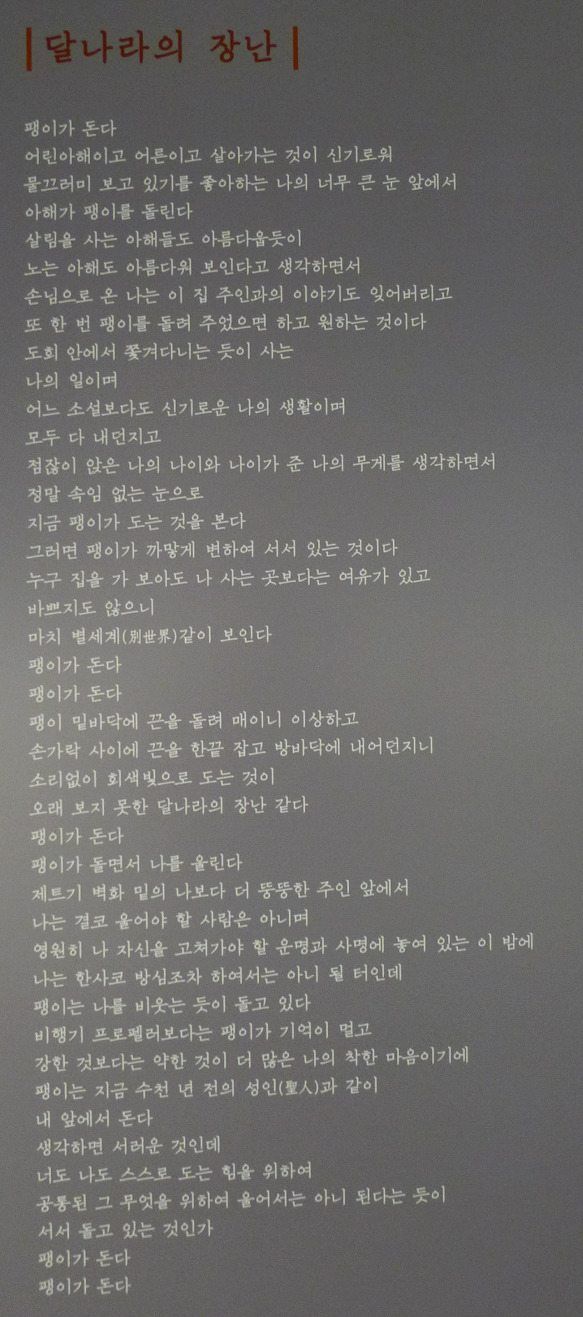 달나라의 장난
팽이가 돈다
어린아해이고 어른이고 살아가는 것이 신기로워
물끄러미 보고 있기를 좋아하는 나의 너무 큰 눈 앞에서
아해가 팽이를 돌린다
살림을 사는 아해들도 아름다웁듯이
노는 아해도 아름다워 보인다고 생각하면서
손님으로 온 나는 이 집 주인과의 이야기도 잊어버리고
또 한 번 팽이를 돌려 주었으면 하고 원하는 것이다
도회 안에서 쫓겨다니는 듯이 사는
나의 일이며
어느 소설보다도 신기로운 나의 생활이며
모두 다 내던지고
점잖이 앉은 나의 나이와 나이가 준 나의 무게를 생각하면서
정말 속임 없는 눈으로
지금 팽이가 도는 것을 본다
그러면 팽이가 까맣게 변하여 서서 있는 것이다
누구 집을 가 보아도 나 사는 곳보다는 여유가 있고
바쁘지도 않으니
마치 별세계(別世界)같이 보인다
팽이가 돈다
팽이가 돈다
팽이 밑바닥에 끈을 돌려 매이니 이상하고
손가락 사이에 끈을 한끝 잡고 방바닥에 내어던지니
소리없이 회색빛으로 도는 것이
오래 보지 못한 달나라의 장난 같다
팽이가 돈다
팽이가 돌면서 나를 울린다
제트기 벽화 밑의 나보다 더 뚱뚱한 주인 앞에서
나는 결코 울어야 할 사람은 아니며
영원히 나 자신을 고쳐가야 할 운명과 사명에 놓여 있는 이 밤에
나는 한사코 방심조차 하여서는 아니 될 터인데
팽이는 나를 비웃는 듯이 돌고 있다
비행기 프로펠러보다는 팽이가 기억이 멀고
강한 것보다는 약한 것이 더 많은 나의 착한 마음이기에
팽이는 지금 수천 년 전의 성인(聖人)과 같이
내 앞에서 돈다
생각하면 서러운 것인데
너도 나도 스스로 도는 힘을 위하여
공통된 그 무엇을 위하여 울어서는 아니 된다는 듯이
서서 돌고 있는 것인가
팽이가 돈다
팽이가 돈다